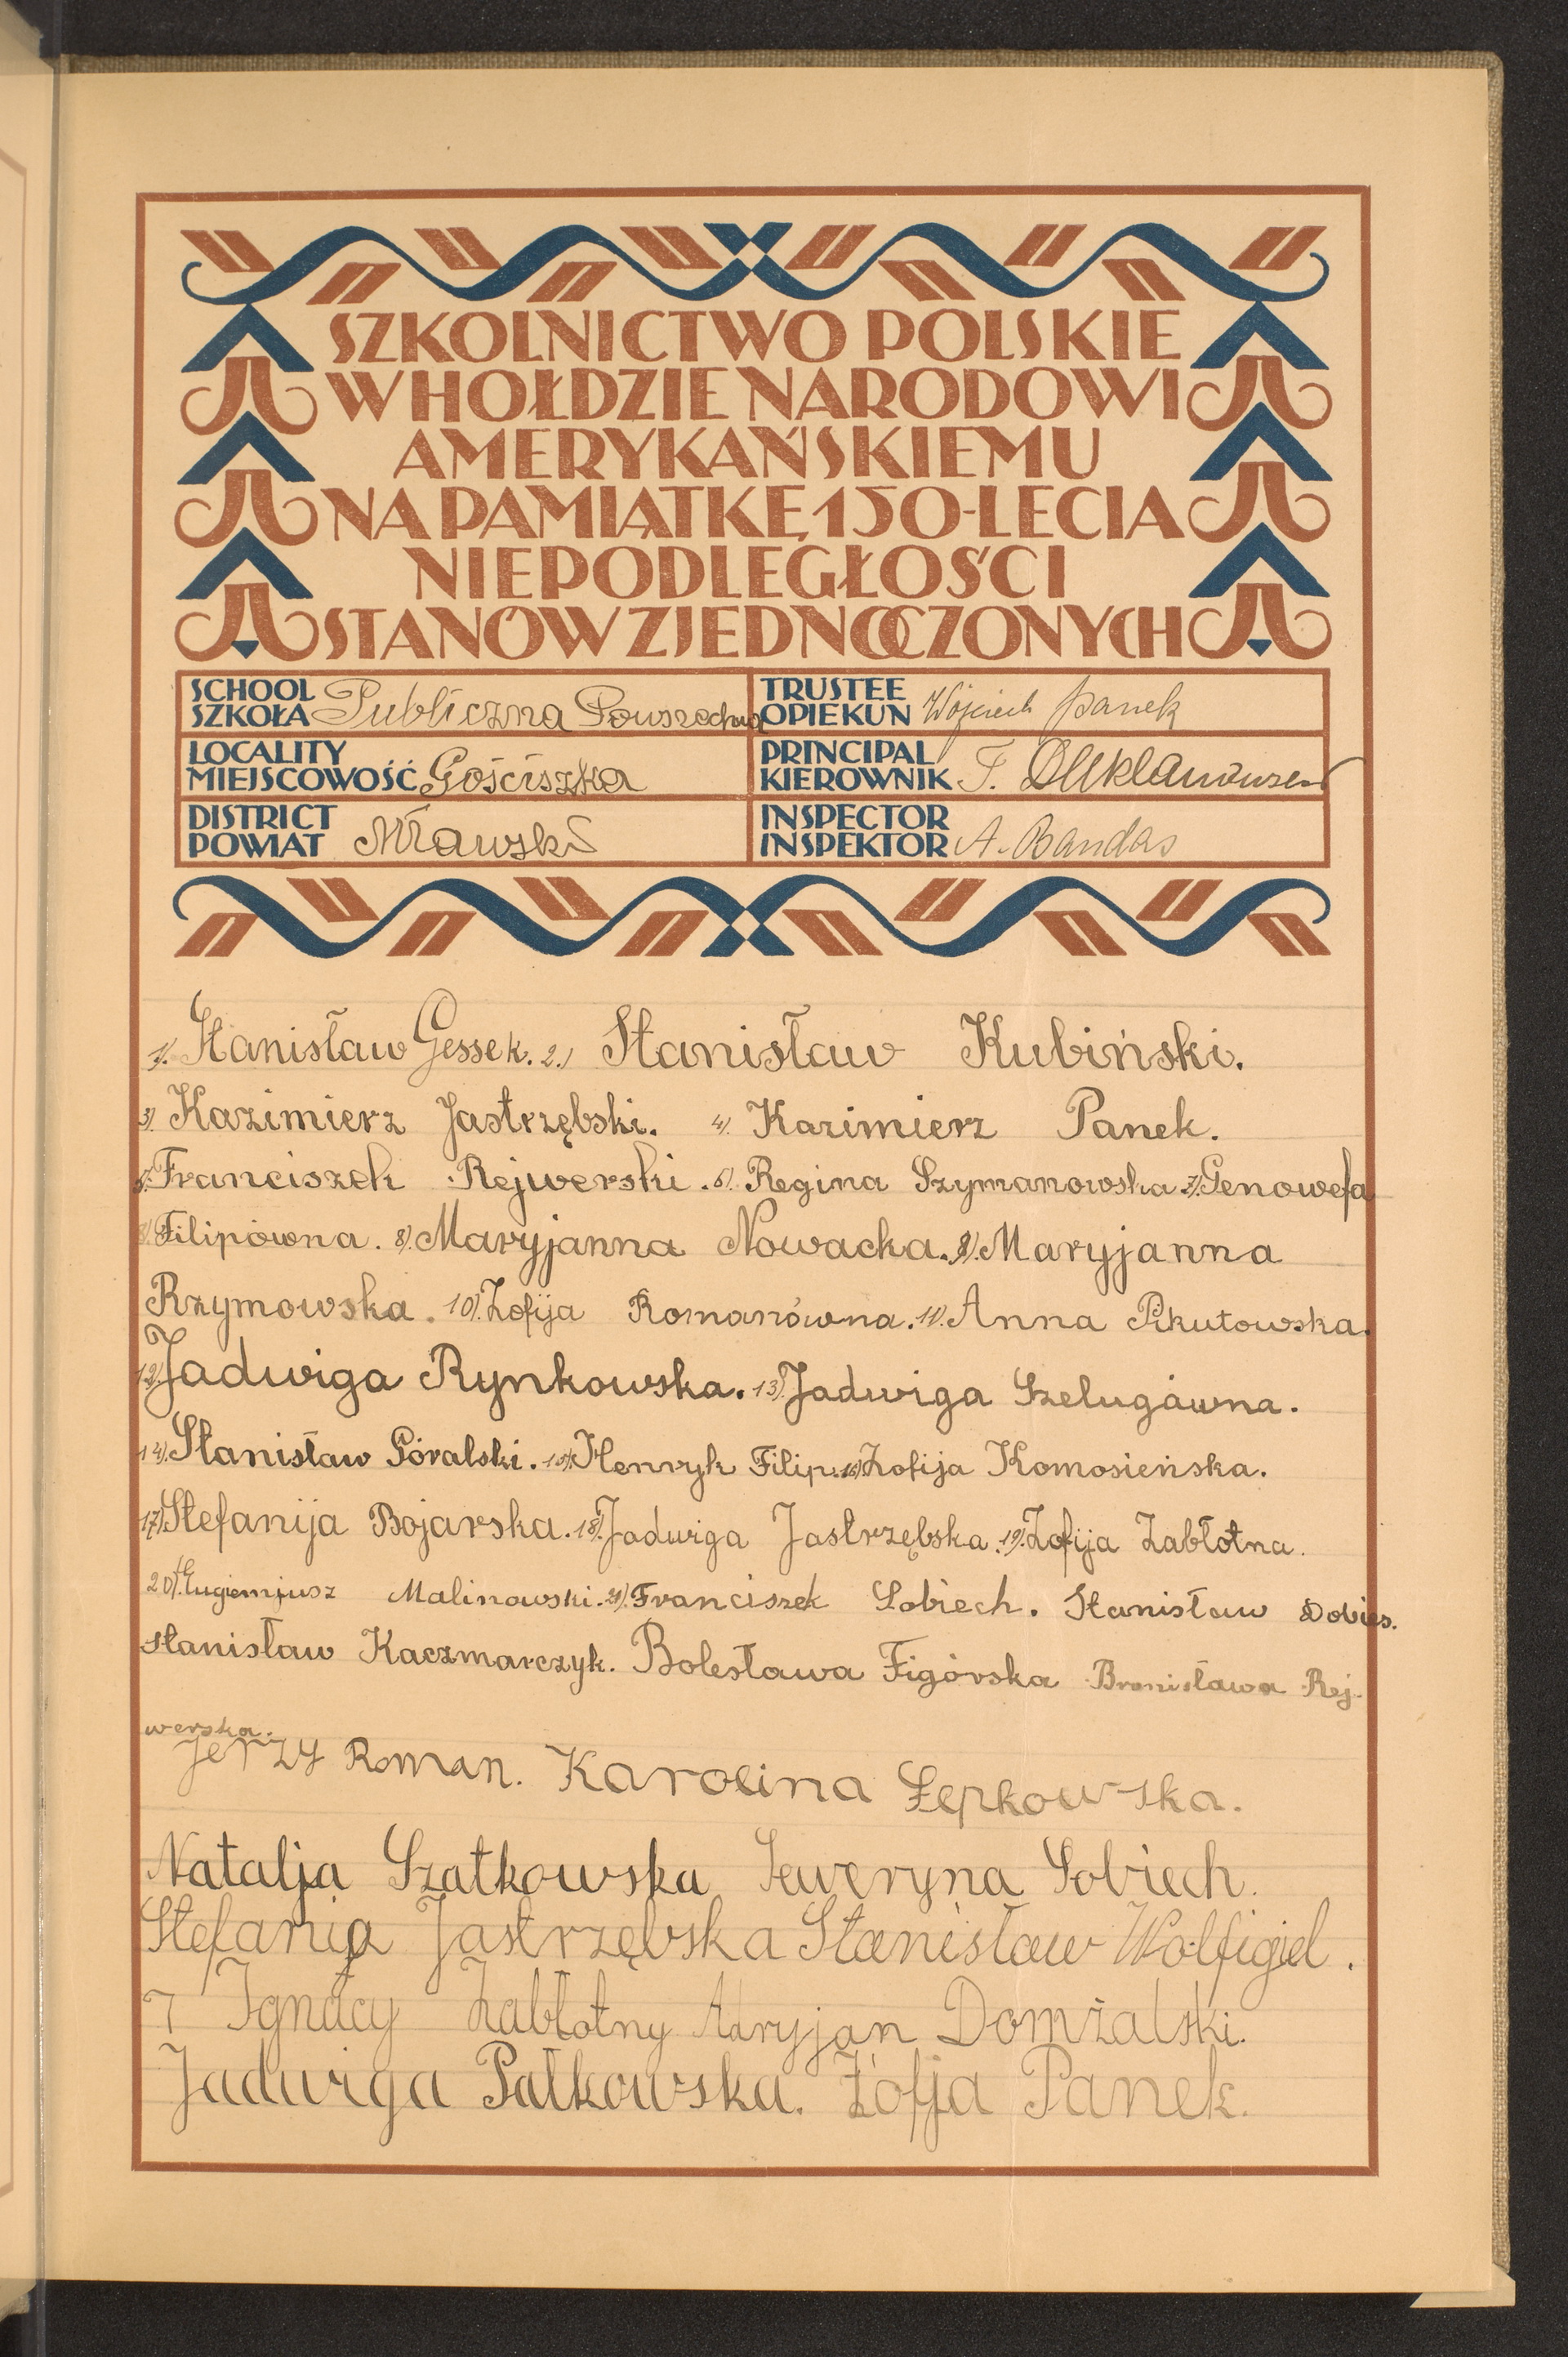 SZKOLNICTWO POLSKIE
W HOŁDZIE NARODOWI
AMERYKAŃSKIEMU
NA PAMIĄTKĘ 150-LECIA
NIEPODLEGŁOŚCI
STANÓW ZJEDNOCZONYCH
SCHOOL
SZKOŁA Publiczna Powszechna
TRUSTEE
OPIEKUN Wojciech Panek
LOCALITY
MIEJSCOWOŚĆ Gościszka
PRINCIPAL
KIEROWNIK F.
DISTRICT
POWIAT Mławski
INSPECTOR
INSPEKTOR A. Bandas
1). Stanisław Gessek. 2.) Stanisław Kubiński.
3). Kazimierz Jastrzębski. 4). Kazimierz Panek.
5). Franciszek Rejwerski. 6). Regina Szymanowska 7). Genowefa
Filipówna. 8). Maryjanna Nowacka. 9). Maryjanna
Rzymowska. 10). Zofija Romanówna. 11). Anna Pikutowska.
12). Jadwiga Rynkowska. 13). Jadwiga Szelugówna.
14). Stanisław Góralski. 15). Henryk Filip. 16) Zofija Komosieńska.
17) Stefanija Bojarska. 18). Jadwiga Jastrzębska. 19). Zofija Zabłotna.
20). Eugiemjusz Malinowski. 21). Franciszek Sobiech. Stanisław Dobies.
Stanisław Kaczmarczyk. Bolesława Figórska Bronisława Rej-
werska.
Jerzy Roman. Karolina Łepkowska.
Natalja Szatkowska Seweryna Sobiech.
Stefania Jastrzębska Stanisław Wolfigiel.
Ignacy Zabłotny Adryjan Domżalski.
Jadwiga Pałkowska. Zofja Panek.